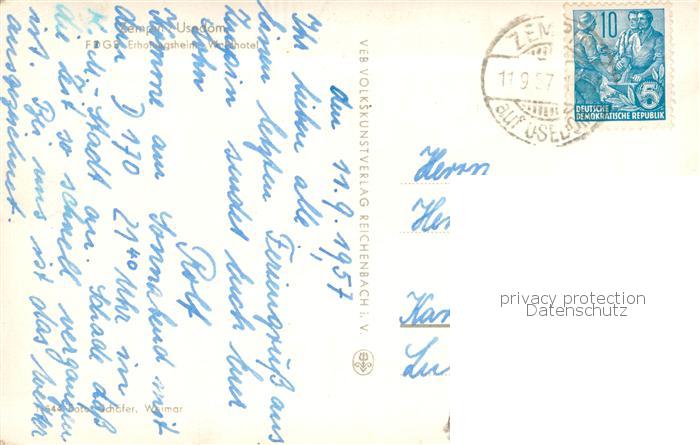 Zempin / Usedom
FDGB Erholungsheim Waldhotel
den 11.9.1957
Ihr lieben alle,
einen letzten Feriengruß aus
Zempin sendet Euch Euer
Sohn Rolf
Komme am Sonnabend mit
dem D 170 21⁴⁰ Uhr in
K. M.-Stadt an. Schade daß
die Zeit so schnell vergangen
ist. Bei uns ist das Wetter
ausgezeichnet.
11644 Foto: Schäfer, Weimar
VEB VOLKSKUNSTVERLAG REICHENBACH i. V.
ZEMPIN
11.9.57
auf USEDOM
10
5
DEUTSCHE
DEMOKRATISCHE REPUBLIK
Herrn
privacy protection
Datenschutz